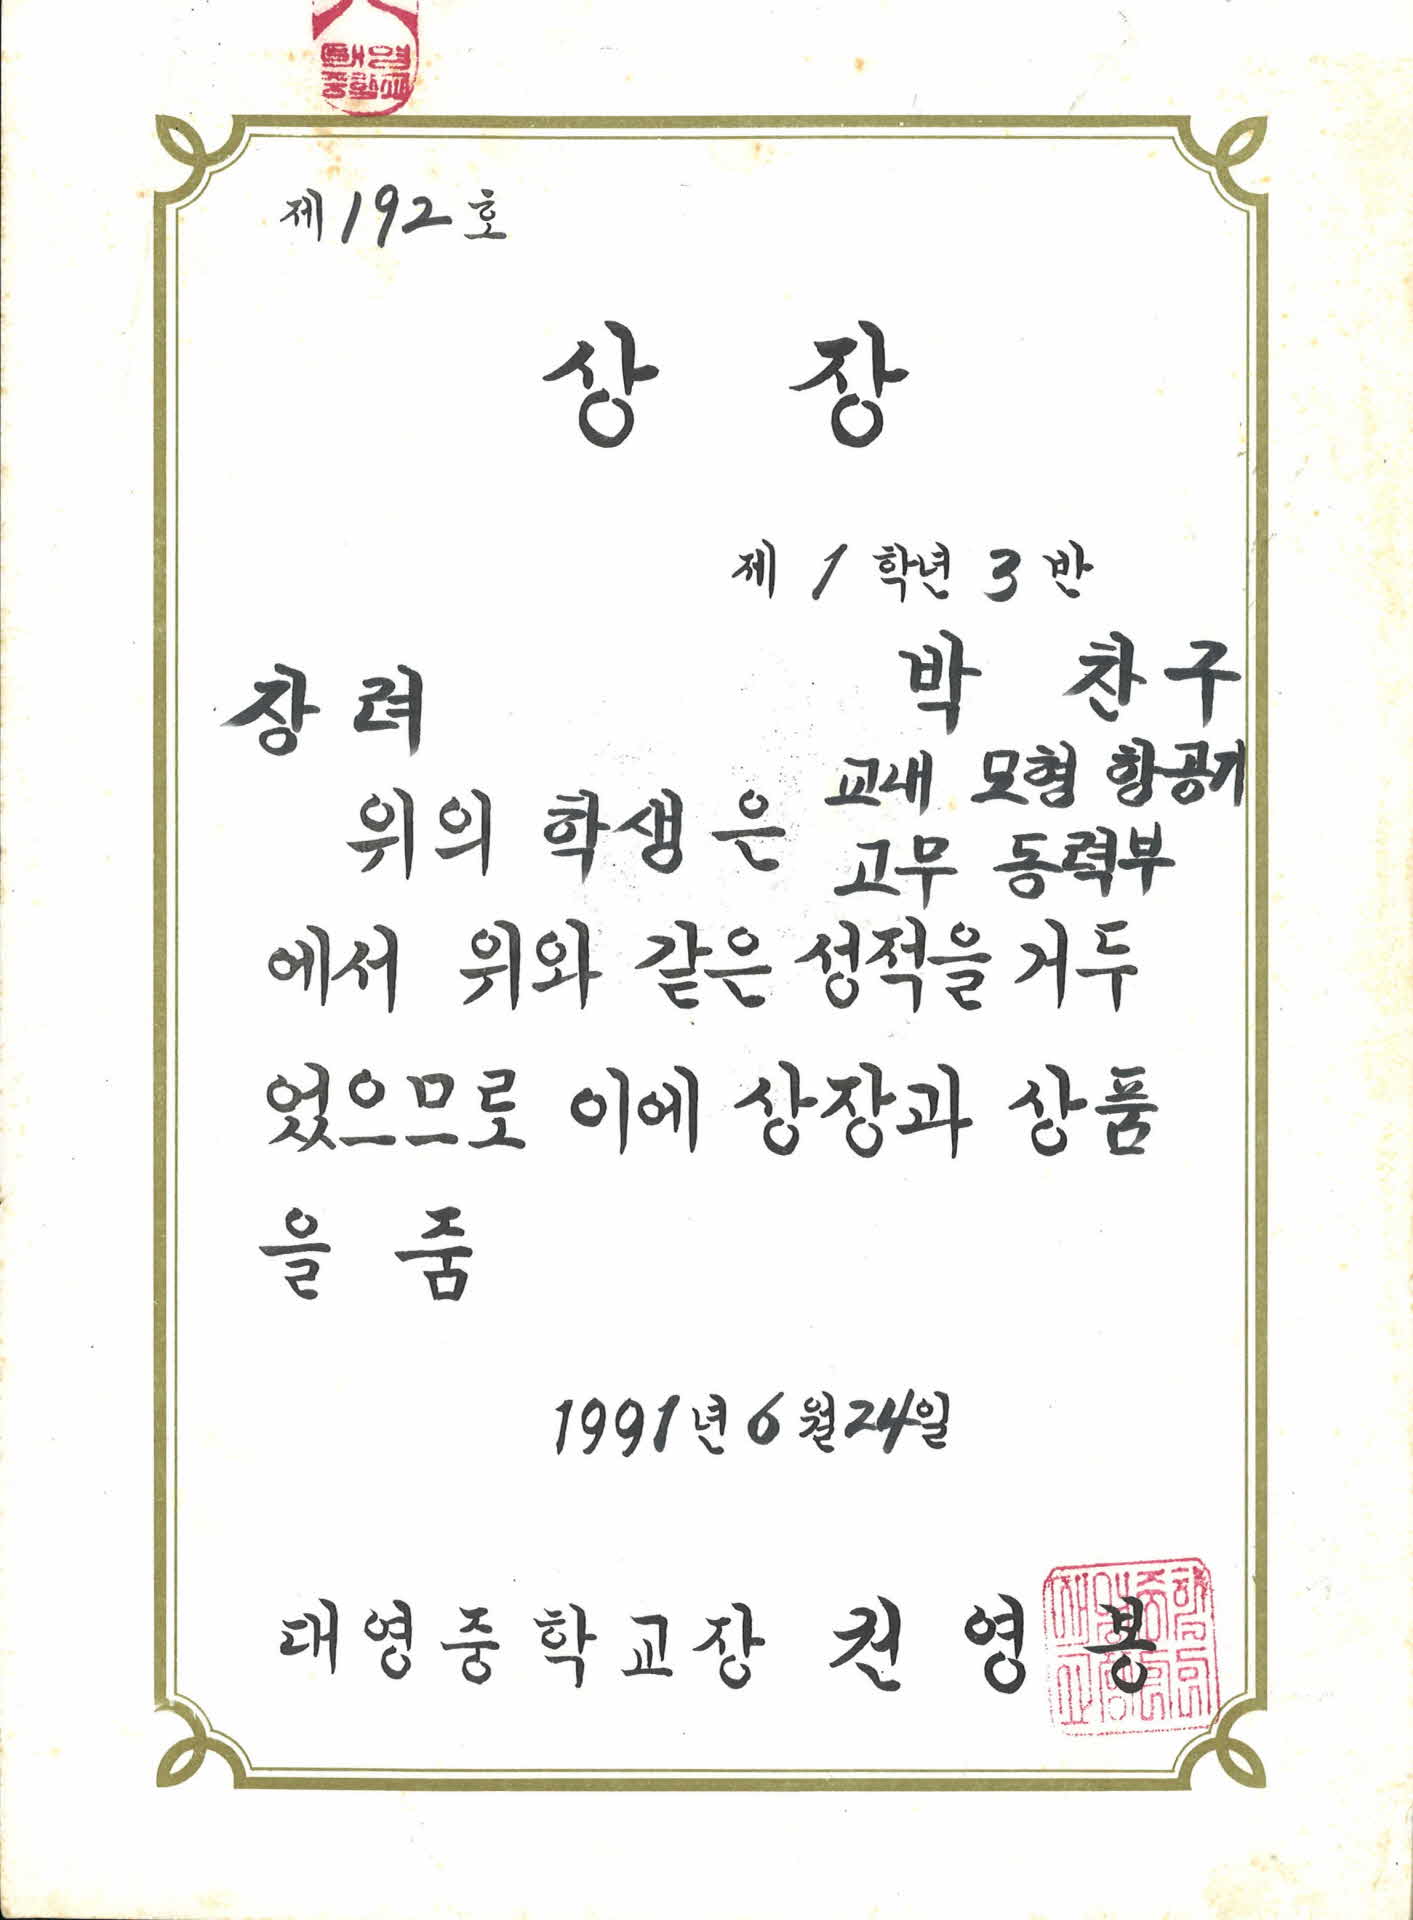 제192호
상 장
제 1 학년 3 반
박 찬구
장려
위의 학생은 교내 모형 항공기
고무 동력부
에서 위와 같은 성적을 거두
었으므로 이에 상장과 상품
을 줌
1991년 6월 24일
대영중학교장 권영봉